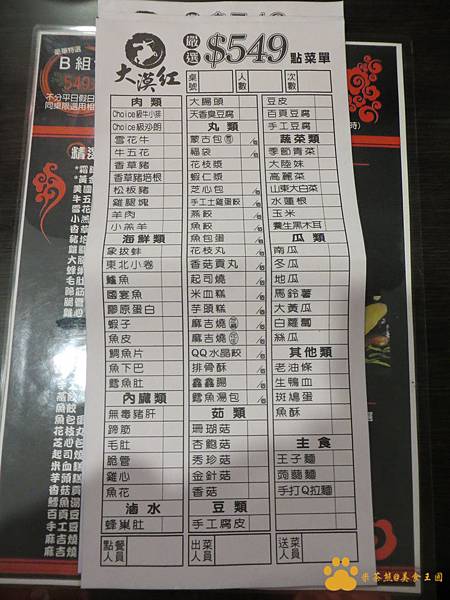 大漠紅
嚴選 $549 點菜單
桌號 人數 次數
肉類
Choice級牛小排
Choice級沙朗
雪花牛
牛五花
香草豬
香草豬培根
松板豬
雞腿塊
羊肉
小羔羊
海鮮類
象拔蚌
東北小卷
鱸魚
國宴魚
膠原蛋白
蝦子
魚皮
鯛魚片
魚下巴
鱈魚肚
內臟類
無毒豬肝
蹄筋
毛肚
脆管
雞心
魚花
滷水
蜂巢肚
大腸頭
天香臭豆腐
丸類
蒙古包
福袋
花枝漿
蝦仁漿
芝心包
手工士雞蛋餃
燕餃
魚餃
魚包蛋
花枝丸
香菇貢丸
起司燒
米血糕
芋頭糕
麻吉燒
麻吉燒
QQ水晶餃
排骨酥
鑫鑫腸
鱈魚湯包
菇類
珊瑚菇
杏鮑菇
秀珍菇
金針菇
香菇
豆類
手工腐皮
豆皮
百頁豆腐
手工豆腐
蔬菜類
季節青菜
大陸妹
高麗菜
山東大白菜
水蓮根
玉米
養生黑木耳
瓜類
南瓜
冬瓜
地瓜
馬鈴薯
大黃瓜
白蘿蔔
絲瓜
其他類
老油條
生鴨血
斑鳩蛋
魚酥
主食
王子麵
蒟蒻麵
手打Q拉麵
點餐人員 出菜人員 送菜人員
豪華特選
B組
549
不分平日假日
同桌限選用相
精選
時)
米茶熊の美食王国